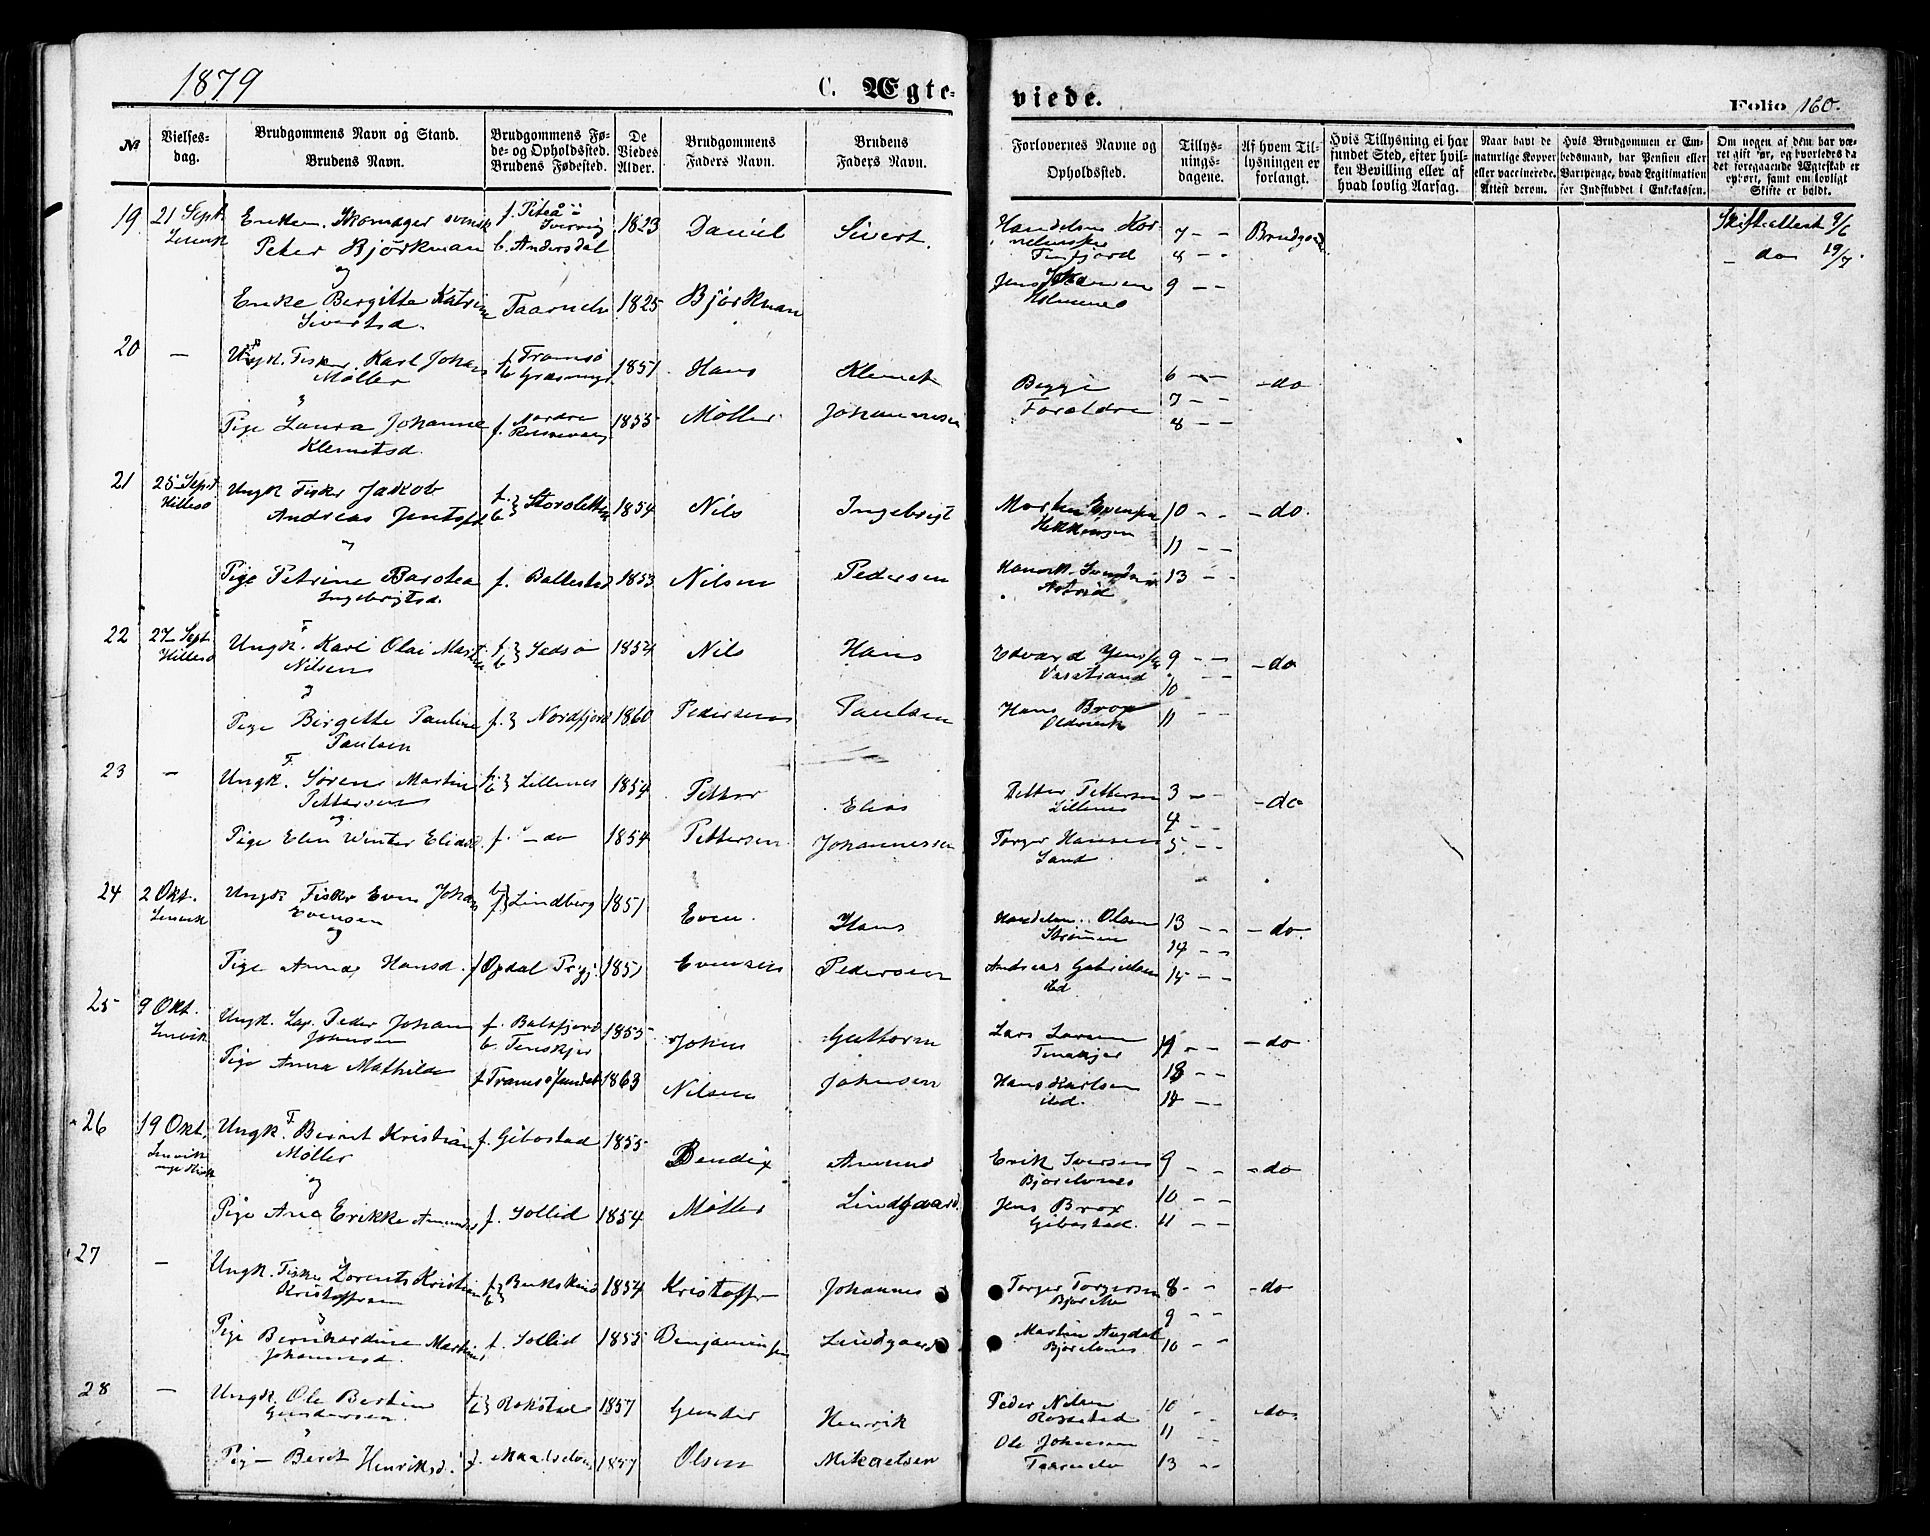 1879
C. Ægte-
viede.
Folio 160.
№
Vielses-
dag.
Brudgommens Navn og Stand.
Brudens Navn.
Brudgommens Fø-
de- og Opholdssted.
Brudens Fødested.
De
Viedes
Alder.
Brudgommens
Faders Navn.
Brudens
Faders Navn.
Forlovernes Navne og
Opholdssted.
Tillys-
nings-
dagene.
Af hvem Til-
lysningen er
forlangt.
Hvis Tillysning ei har
fundet Sted, efter hvil-
ken Bevilling eller af
hvad lovlig Aarsag.
Naar havt de
naturlige Kopper
eller vaccinerede.
Attest derom.
Hvis Brudgommen er Em-
bedsmand, har Pension eller
Vartpenge, hvad Legitimation
for Indskuddet i Enkekassen.
Om nogen af dem har væ-
ret gift før, og hvorledes da
det foregaaende Ægteskab er
ophørt, samt om lovligt
Skifte er holdt.
19 21 Sept Enkem. Skomager svensk f. Piteå 1823 Daniel Sivert. 7 - - Brudgom Skifteattest 9/6
Lenvik Peter Björkman b. Andersdal Finfjord 8 - - - do 19/7
og
Enke Bergitte Katrine Taarnelv 1825 Björkman Jens 9 - -
Sivertsd. Holmenes
20 - Ungk. Fisker Karl Johan f. Tromsø 1851 Hans Klemet Begge 6 - - - do
Møller b. Græsmyr Forældre 7 - -
Pige Laura Johanne f. Nordre 1855 Møller Johannessen 8 - -
Klemetsd.
21 25 Sept Ungk Fisker Jakob f. } Storsletten 1854 Nils Ingebrigt Morten 10 - - - do.
Hillesø Andreas b. 11 - -
og
Pige Petrine Barstea f. Ballestad 1853 Nilsen Pedersen 13 - -
Ingebrigtsd.
22 27 Sept Ungk. F. Karl Olai Martin f. } Sedsø 1854 Nils Hans Edvard Jens 9 - - - do
Hillesø Nilsen b. Vasstrand 10 - -
og
Pige Birgitte Pauline f. } Nordfjord 1860 Pedersen Paulsen Hans Brox 11
Paulsen Oldervik
23 - Ungk. F. Søren Martin f. } Lillenes 1854 Petter Elias Petter Pettersen 3 - - - do
Pettersen b. Lillenes 4 - -
og
Pige Elen Winter Eliasd f. - do 1854 Pettersen Johannessen Torger Hansen 5 - -
Sand
24 2 Okt. Ungk Fisker Even Johan b } Lindberg 1851 Even Hans Handelsm. Olsen 13 - - - do.
Lenvik Evensen f Strømmen 14 - -
og
Pige Anna Hansd. f Opdal Trhj. 1851 Evensen Pedersen Andreas Gabrielsen 15 - -
ibd
25 9 Okt. Ungk. Lap. Peder Johan f. Balsfjord 1855 Johan Guttorm Lars Larsen 17 - - - do
Lenvik Johnsen b. Finskjer
Pige Anna Mathilde f Tromsøsundet 1863 Nilsen Johnsen Hans Karlsen 18 - -
ibd. 18 - -
26 19 Okt. Ungk. F. Bernt Kristian f. Gibostad 1855 Bendix Amund Erik Iversen 9 - - - do
Lenvik Møller Bjorelvnes 10 - -
nye Kirk
og
Pige Ane Erikke Amunds f. Sollid 1854 Møller Lindgaard Jens Brox 11 - -
Gibostad.
27 - Ungk. Fisker Lorents Kristian f. 1854 Kristoffr Johannes Torger Torgersen 8 - - - do
Kristoffersen b. 9 - -
Pige Bernhardine Martine f. Sollid 1855 Benjaminsen Lindgaard Martin Augdal 10 - -
Johannesd. Bjorelvnes
28 - Ungk. Ole Bertin f. } Rokstad 1857 Gunder Henrik Peder Nilsen 10 - do
Gundersen b. Rogstad 11 - -
Pige Berit Henriksd. f. Maalselven 1857 Olsen Mikaelsen Ole Johnsen 13 - -
Taarnelv